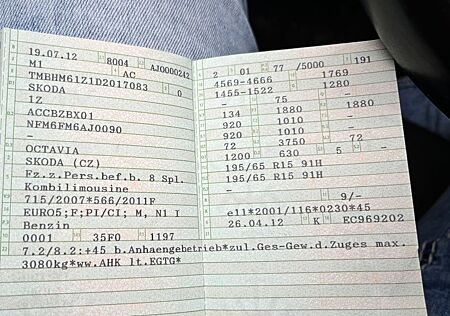 19.07.12 8004 AJ0000242
M1 AC
TMBHM61Z1D2017083 0
SKODA
1Z
ACCBZBX01
NFM6FM6AJ0090 –
–
OCTAVIA
SKODA (CZ)
Fz.z.Pers.bef.b. 8 Spl.
Kombilimousine
715/2007*566/2011F
EURO5;F;PI/CI; M, N1 I
Benzin
0001 35F0 1197
2 01 77 /5000 191
4569-4666 1769
1455-1522 1280
75 –
134 1880 1880
920 1010 –
920 1010 –
72 3750 72
1200 630 5 –
195/65 R15 91H
195/65 R15 91H
–
9/–
e11*2001/116*0230*45
26.04.12 K EC969202
7.2/8.2:+45 b.Anhaengebetrieb*zul.Ges-Gew.d.Zuges max.
3080kg*ww.AHK lt.EGTG*